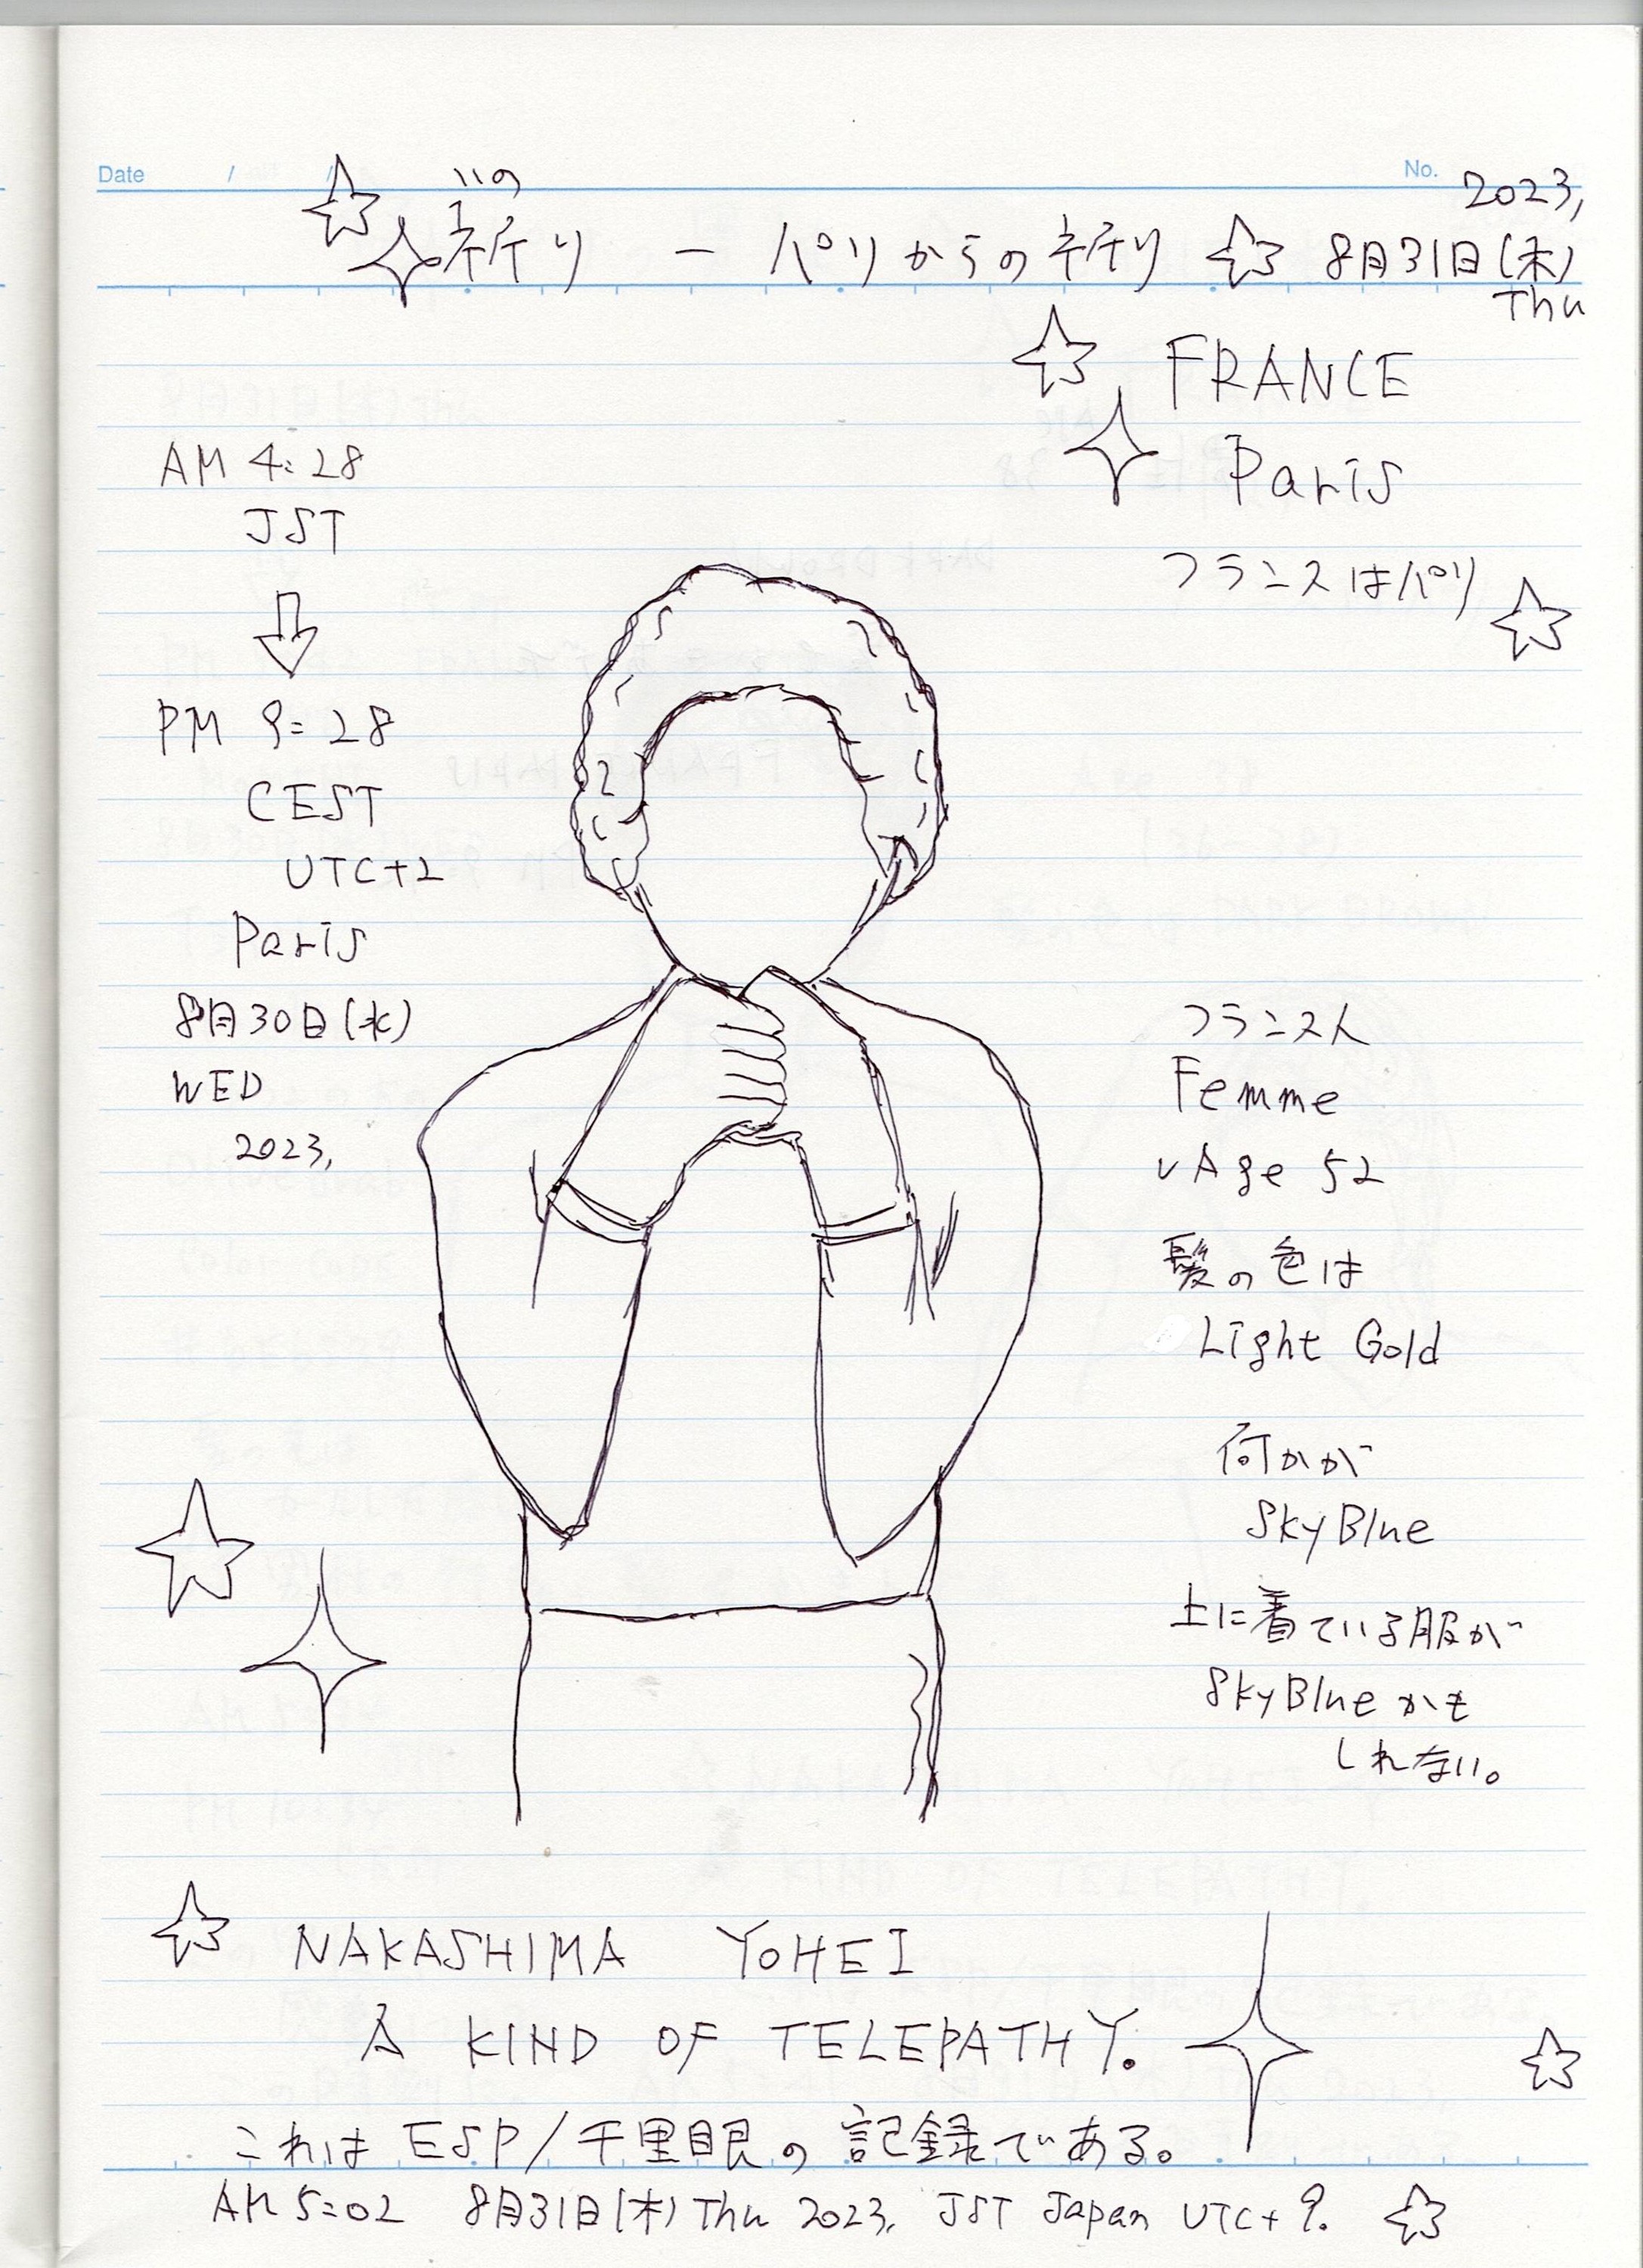 Date / /
No.
2023,
いの
祈り ー パリからの祈り 8月31日(木)
Thu
FRANCE
Paris
フランスはパリ
AM 4:28
JST
PM 9:28
CEST
UTC+2
Paris
8月30日(水)
WED
2023,
フランス人
Femme
Age 52
髪の色は
Light Gold
何かが
SkyBlue
上に着ている服が
SkyBlueかも
しれない。
NAKASHIMA YOHEI
A KIND OF TELEPATHY.
これは ESP/千里眼の記録である。
AM 5:02 8月31日(木) Thu 2023, JST Japan UTC+9.